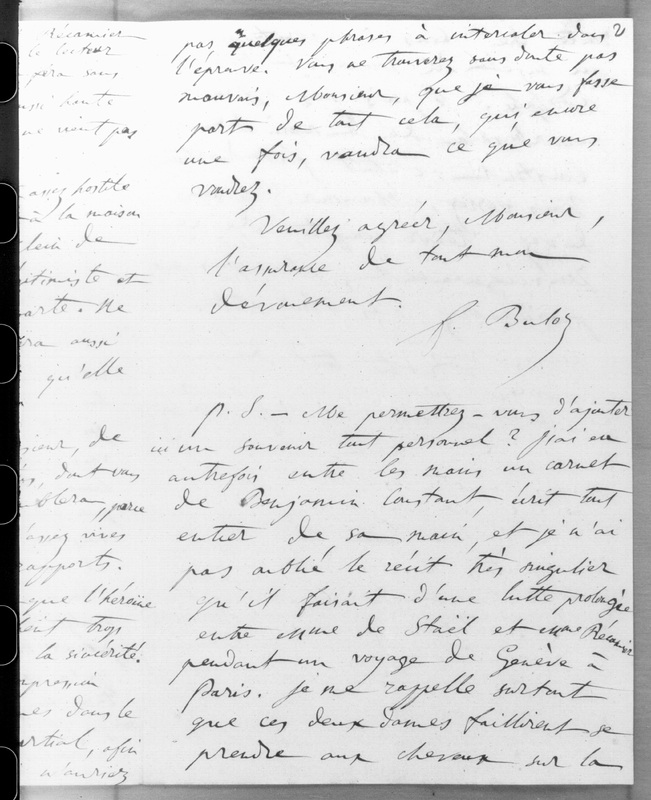 Récamier
le lecteur
fera sans
aussi haute
ne vient pas
assez hostile
à la maison
plein de
légitimiste et
parte. Ne
aussi
qu'elle
sieur, de
dont vous
semblera, parce
d'assez vives
rapports.
que l'héroïne
trop
la sincérité.
mpression
mes dans le
artial, afin
n'auriez
2
pas quelques phrases à intercaler dans
l'épreuve. Vous ne trouverez sans doute pas
mauvais, Monsieur, que je vous fasse
part de tout cela, qui encore
une fois, vaudra ce que vous
voudrez.
Veuillez agréer, Monsieur,
l'assurance de tout mon
dévouement.
F. Buloz
P. S. – Me permettrez-vous d'ajouter
ici un souvenir tout personnel ? J'ai eu
autrefois entre les mains un carnet
de Benjamin Constant, écrit tout
entier de sa main, et je n'ai
pas oublié le récit très singulier
qu'il faisait d'une lutte prolongée
entre Mme de Staël et Mme Récamier
pendant un voyage de Genève à
Paris. Je me rappelle surtout
que ces deux dames faillirent se
prendre aux cheveux sur la